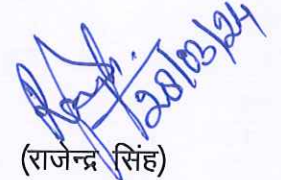 20/03/24
(राजेन्द्र सिंह)